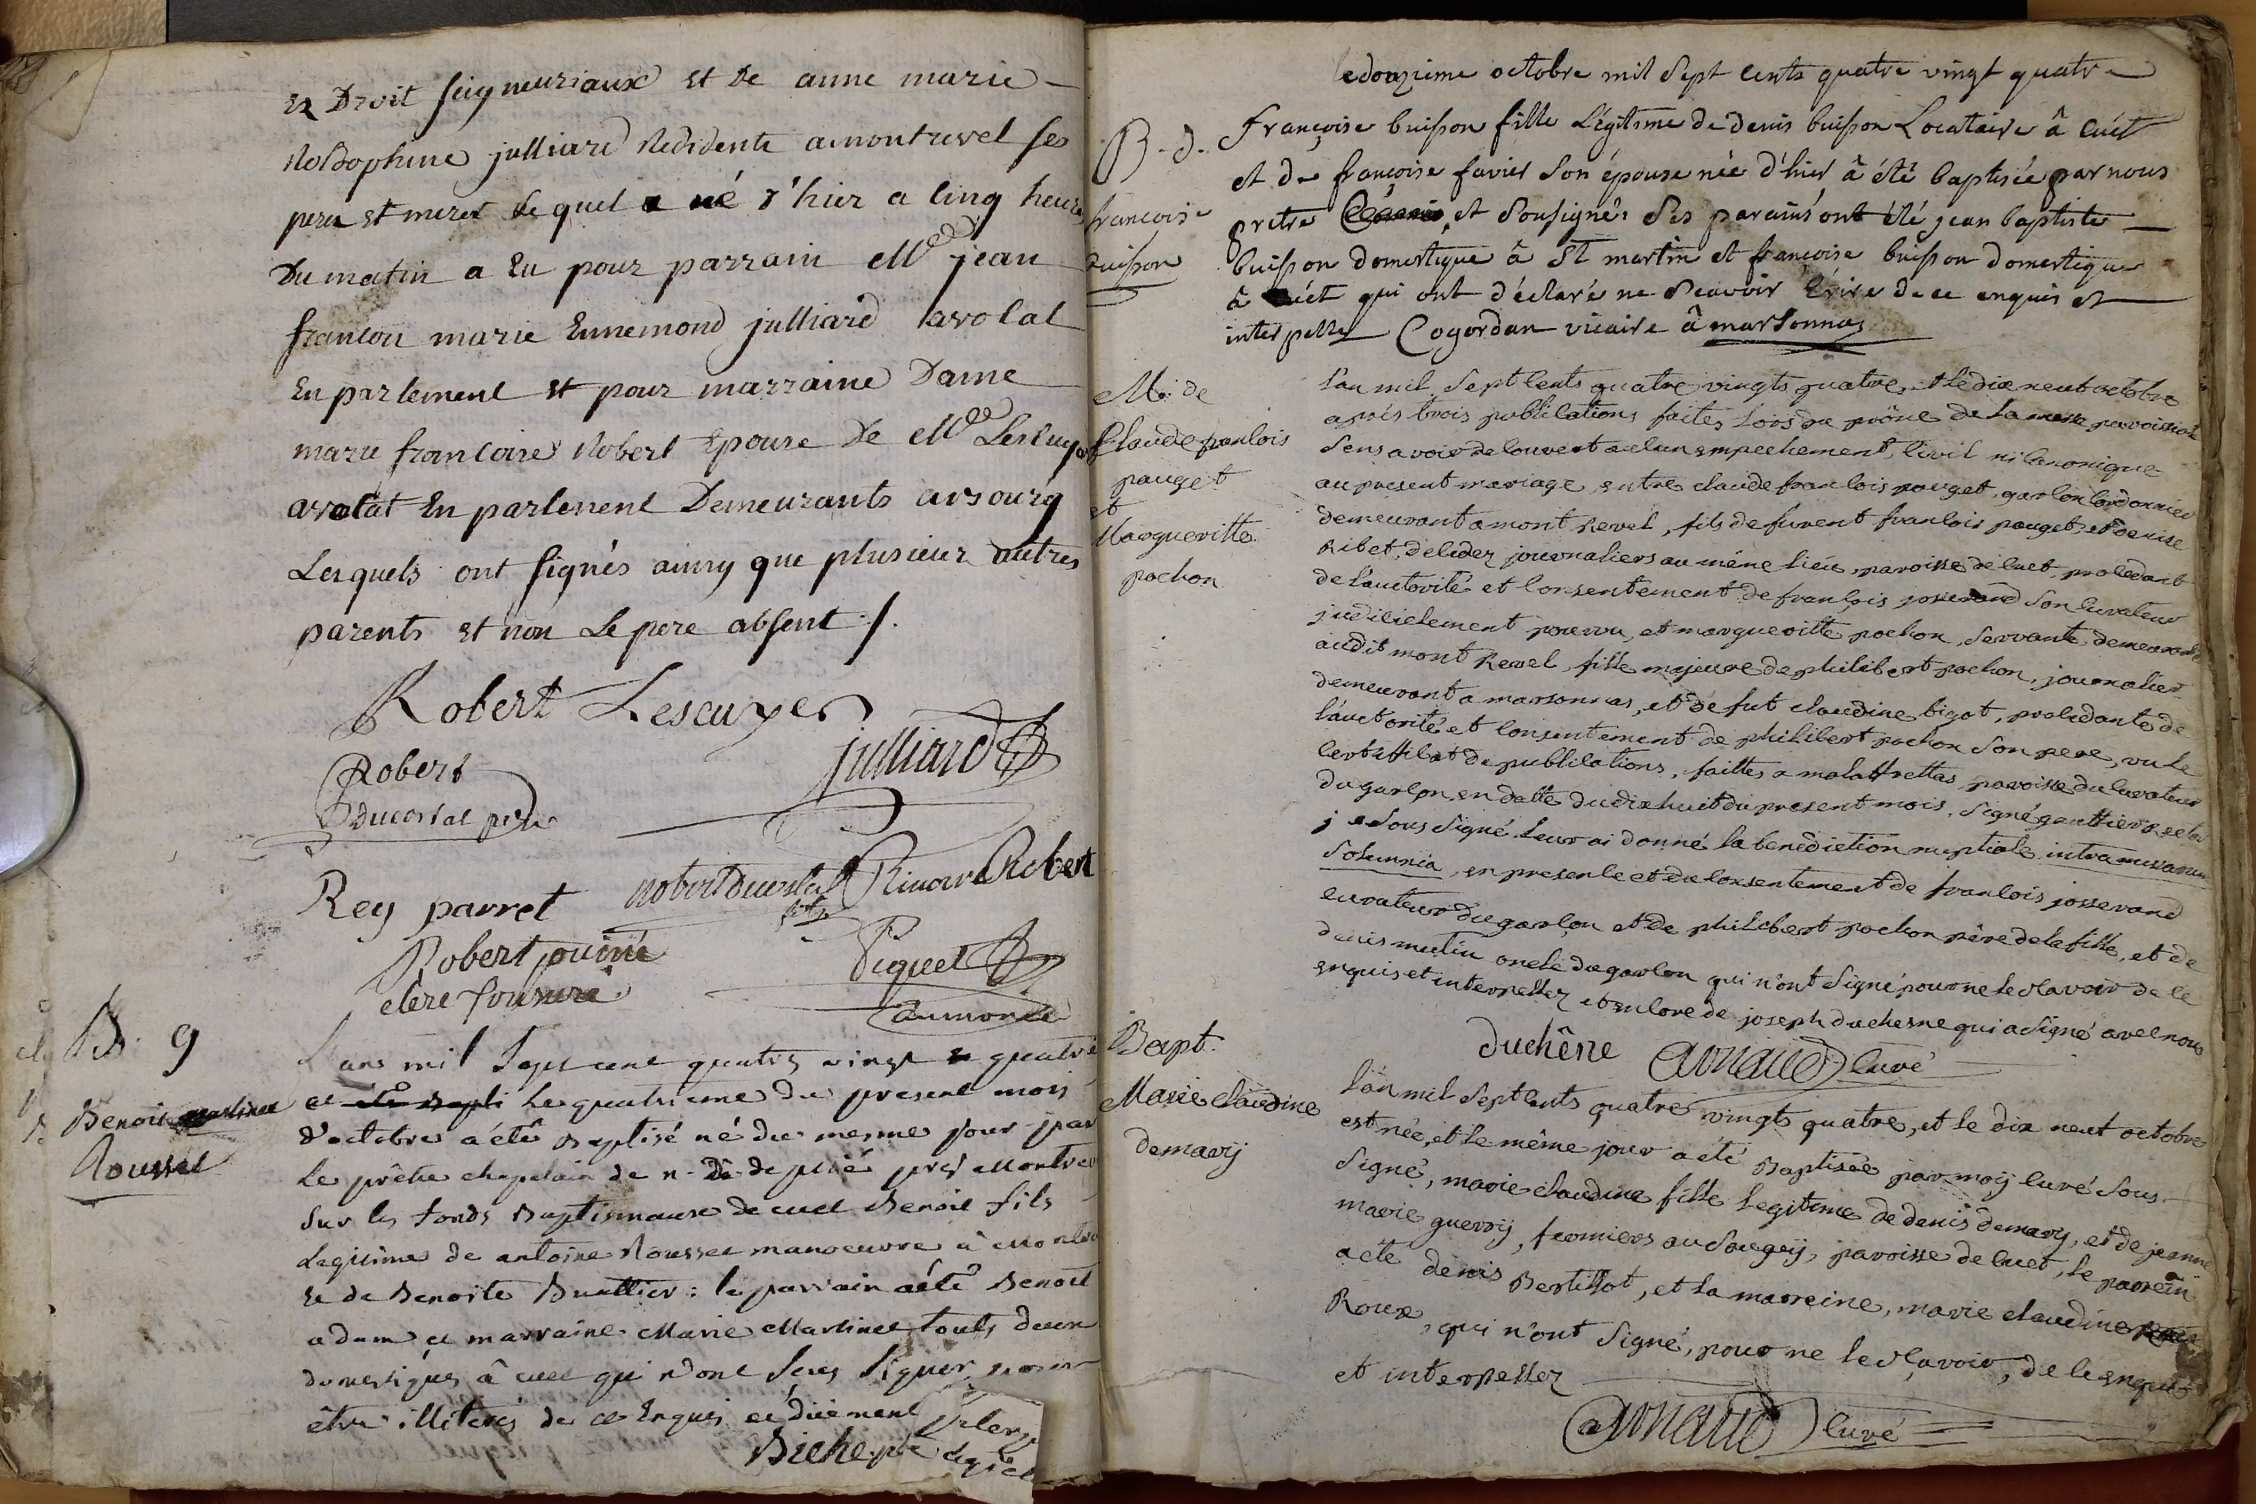 et Droit seigneuriaux et de anne marie
jossephine julliard Residente a montrevel ses
pere et mere lequel né d'hier a cinq heures
Du matin a Eu pour parrain Mr jean
francois marie Ennemond julliard avocat
En parlement et pour marraine Dame
marie francoise Robert Epouse de Mr Lescuyer
avocat En parlement Demeurants a Bourg
Lesquels ont signés ainsy que plusieur autres
parents et non le pere absent /.
Robert Lescuyer
julliard
Robert
Ducostal pere
Rey parret
robert ducostal fils
Rivoire Robert
Robert jouine
clerc tonsuré
Piquet
aumonier
B. 9
Benoit
Roussel
L'ans mil sept cent quatres vingt et quatre
et le quatrieme du present mois
d'octobre a été Baptisé né du mesme jour par
le prêtre chapelain de n. de. de pitié pres Montrevel
sur les fonds Baptismaux de cuet Benoit fils
Legitime de antoine Roussel manoeuvre à Montrevel
et de Benoite Buattier : le parrain a été Benoit
adam et marraine Marie Martinet touts deux
domestiques â cuet qui n'ont sceus signer pour
être illiterés de ce Enquis et duement
Biche ptre
B. d.
francoise
buisson
le douzieme octobre mil sept cents quatre vingt quatre
françoise buisson fille Légitime de denis buisson Locataire â Cuét
et de françoise favier son épouse née d'hier â été baptisée par nous
prêtre et sousigné. Ses parains ont été jean baptiste
buisson domestique â St martin et francoise buisson domestique
â cuét qui ont déclaré ne scavoir écrire de ce enquis et
interpellé Cogordan vicaire â marsonnas
M. de
Claude francois
pauget
et
Margueritte
pochon
L'an mil sept cents quatre vingts quatre, et le dix neuf octobre
après trois publications faites Lors du prône de la messe paroissiale
sens avoir decouvert aucun empechement, civil ni canonique
au present mariage, entre claude francois pauget, garcon cordonnier
demeurant a mont Revel, fils de furent francois pauget, et denise
Ribet, decedez journaliers au même lieu, paroisse de cuet, procedant
de l'auctorité et consentement de françois josserand son curateur
judiciélement pourvu, et margueritte pochon, servante, demeurante
audit mont Revel, fille majeure de philibert pochon, journalier
demeurant a marsonnas, et de fut claudine bizot, procedante de
l'auctorité et consentement de philibert pochon son pere, vu le
certifficat de publications, faittes a malaffrettas, paroisse du curateur
du garçon, en datte du dix huit du present mois, signé gauttier recteur
je sous signé leur ai donné la benediction nuptiale, intra missarum
solemnia, en presence et du consentement de francois josserand
curateur du garçon et de philibert pochon père de la fille, et de
denis mutin oncle du garcon qui n'ont signé pour ne le sçavoir de ce
enquis et interpellez et encore de joseph duchesne qui a signé avec nous
duchêne arnaud curé
Bapt.
Marie claudine
demary
L'an mil sept cents quatre vingts quatre, et le dix neuf octobre
est née, et le même jour a été Baptisée par moy curé sous
signé, marie claudine fille legitime de denis demary, et de jeanne
marie guerry, fermiers au sougey, paroisse de cuet, le parrein
a été denis Bertillot, et la marreine, marie claudine
Roux, qui n'ont signé, pour ne le sçavoir, de ce enquis
et interpellez
arnaud curé